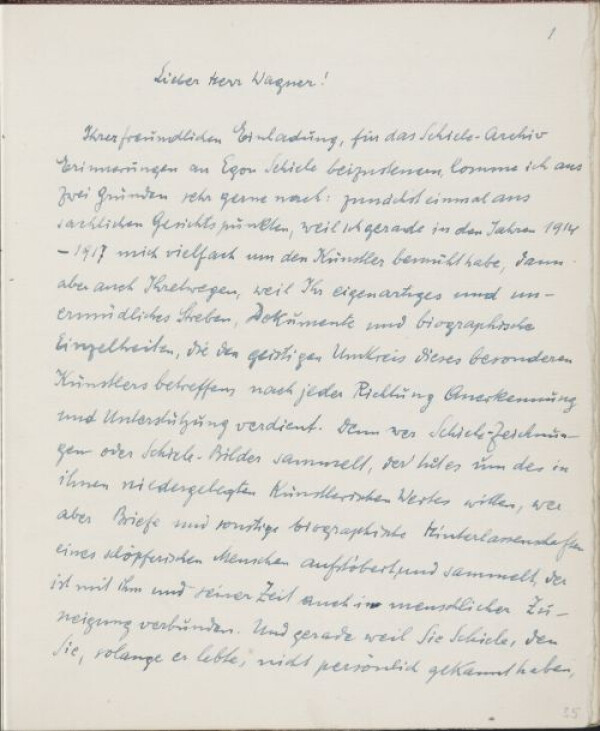 1
Lieber Herr Wagner!
Ihrer freundlichen Einladung, für das Schiele-Archiv
Erinnerungen an Egon Schiele beizusteuern, komme ich aus
zwei Gründen sehr gerne nach: zunächst einmal aus
sachlichen Gesichtspunkten, weil ich gerade in den Jahren 1914
– 1917 mich vielfach um den Künstler bemüht habe, dann
aber auch Ihretwegen, weil Ihr eigenartiges und un-
ermüdliches Streben, Dokumente und biographische
Einzelheiten, die den geistigen Umkreis dieses besonderen
Künstlers betreffen, nach jeder Richtung Anerkennung
und Unterstützung verdient. Denn wer Schiele-Zeichnun-
gen oder Schiele-Bilder sammelt, der tut es um des in
ihnen niedergelegten künstlerischen Wertes willen, wer
aber Briefe und sonstige biographische Hinterlassenschaften
eines schöpferischen Menschen aufstöbert und sammelt, der
ist mit ihm und seiner Zeit auch in menschlicher Zu-
neigung verbunden. Und gerade weil Sie Schiele, den
Sie, solange er lebte, nicht persönlich gekannt haben,
35